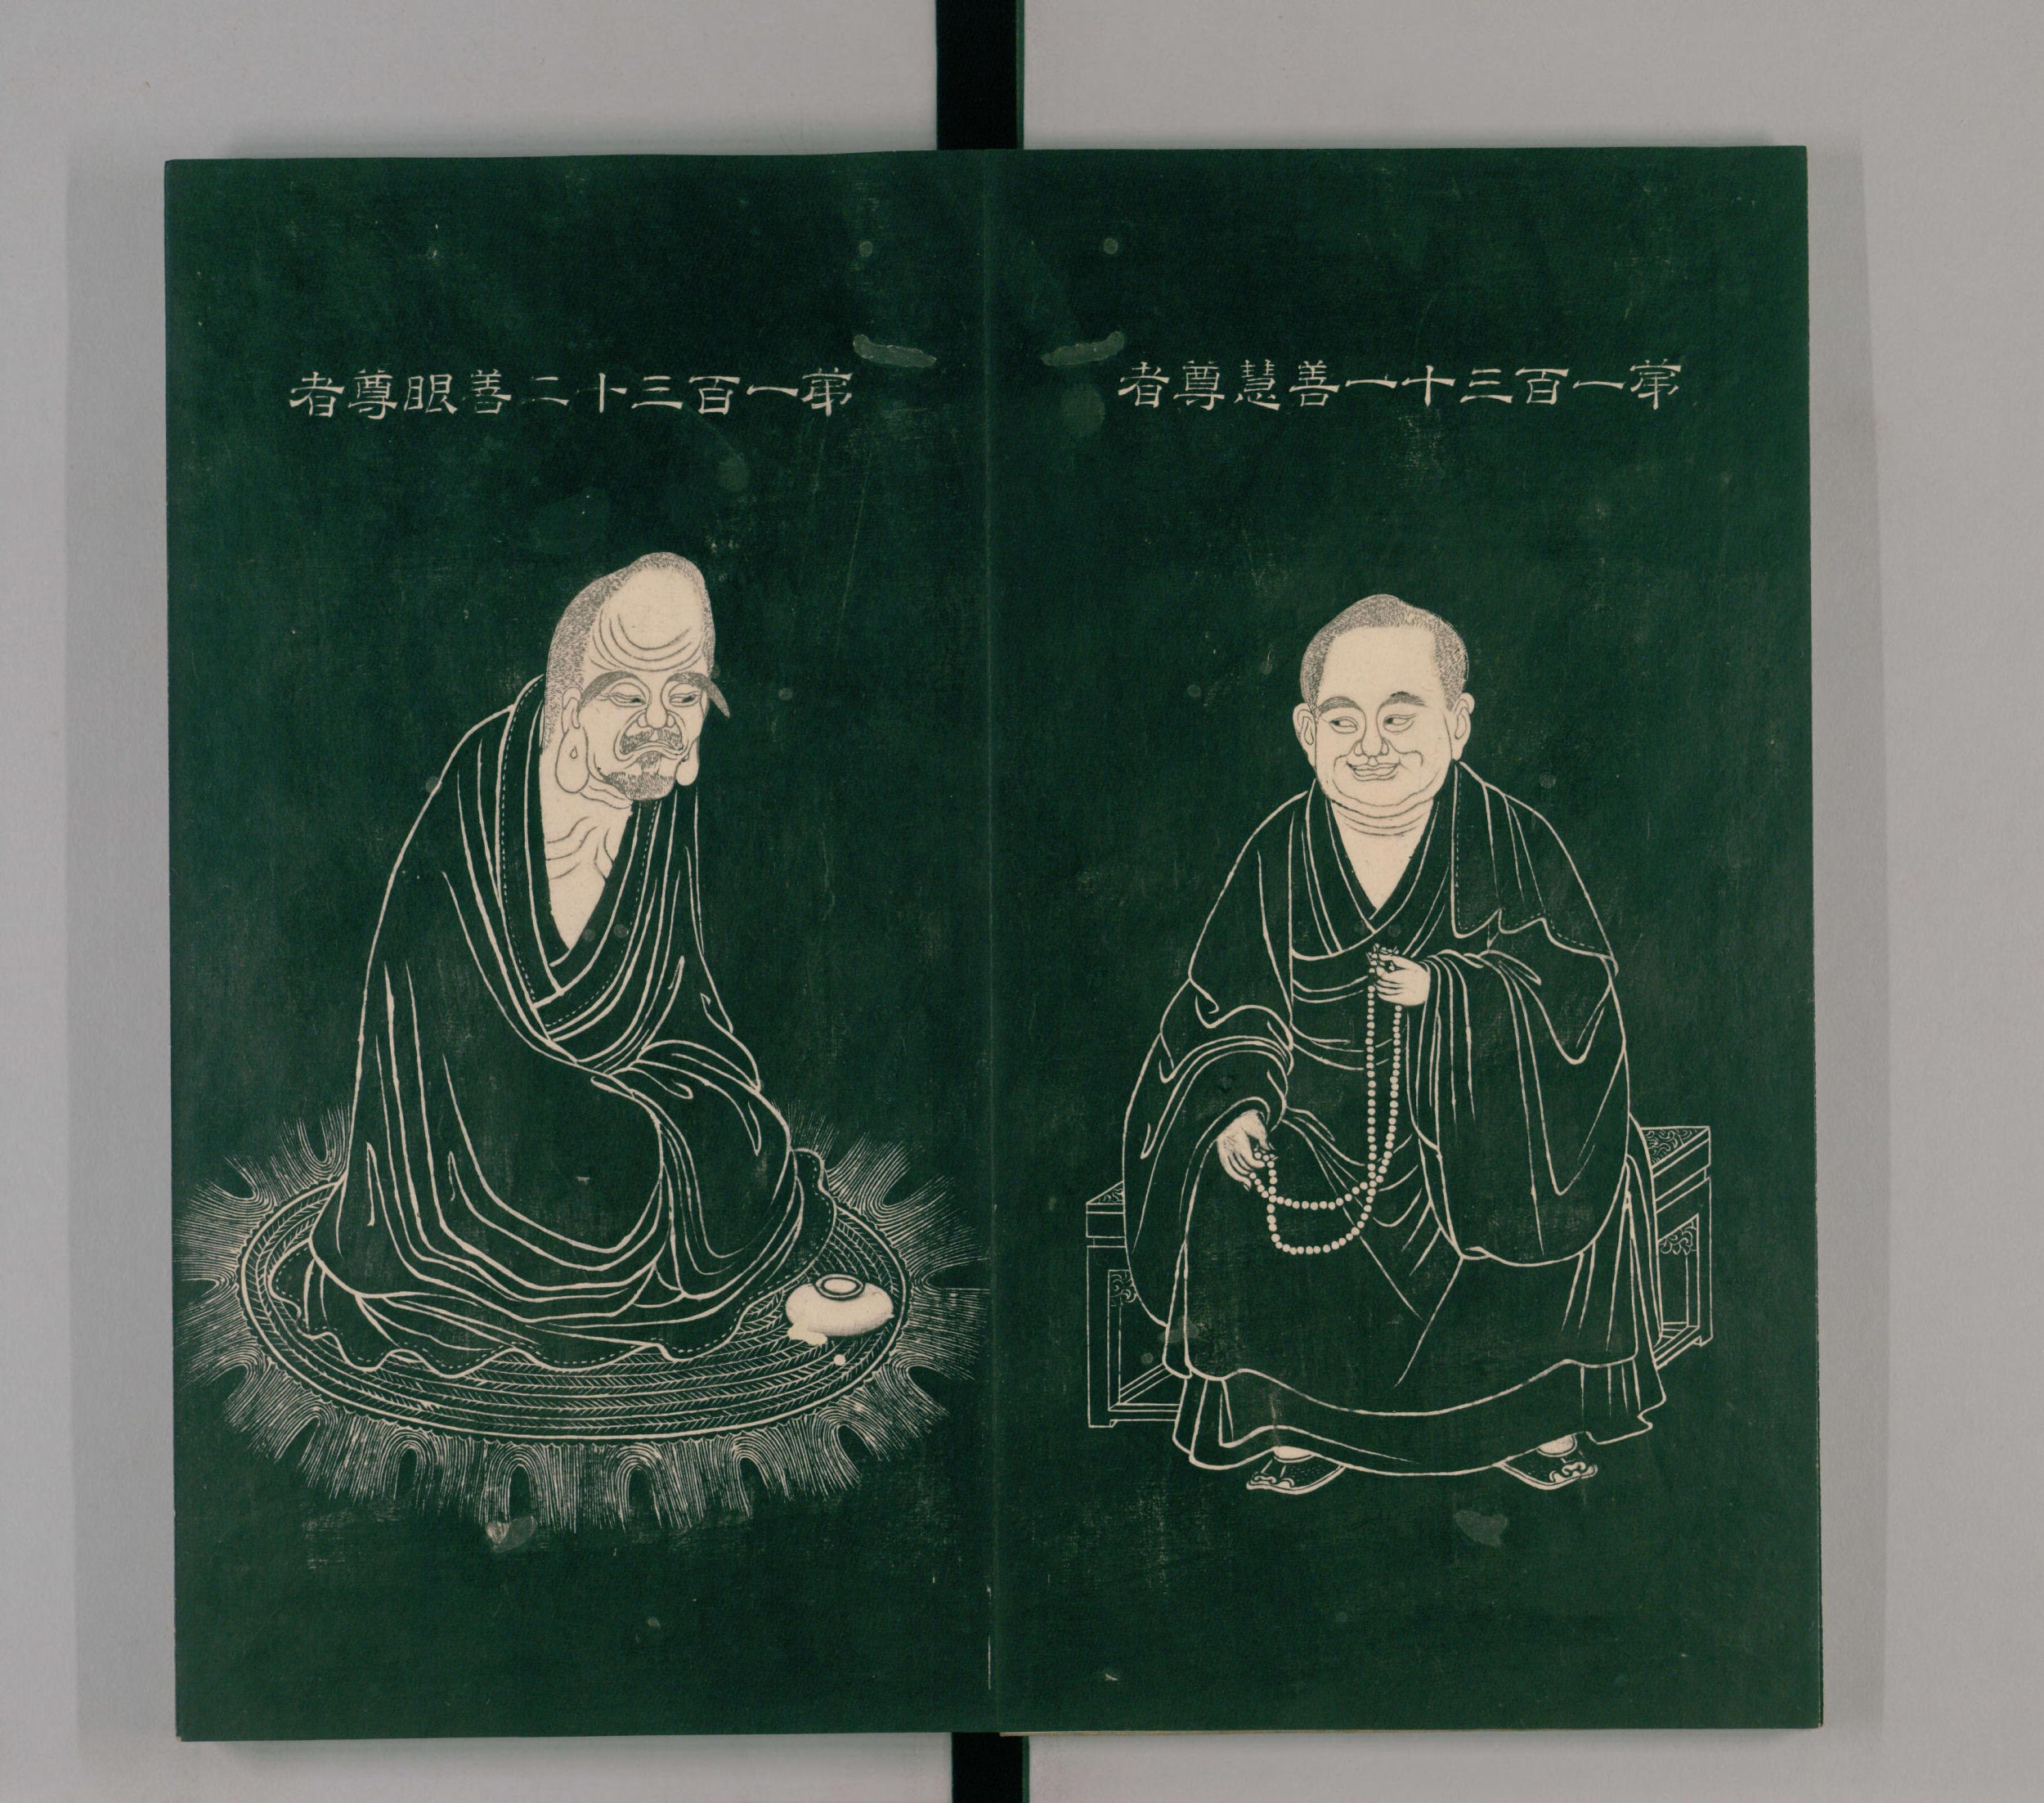 第一百三十一善慧尊者
第一百三十二善眼尊者